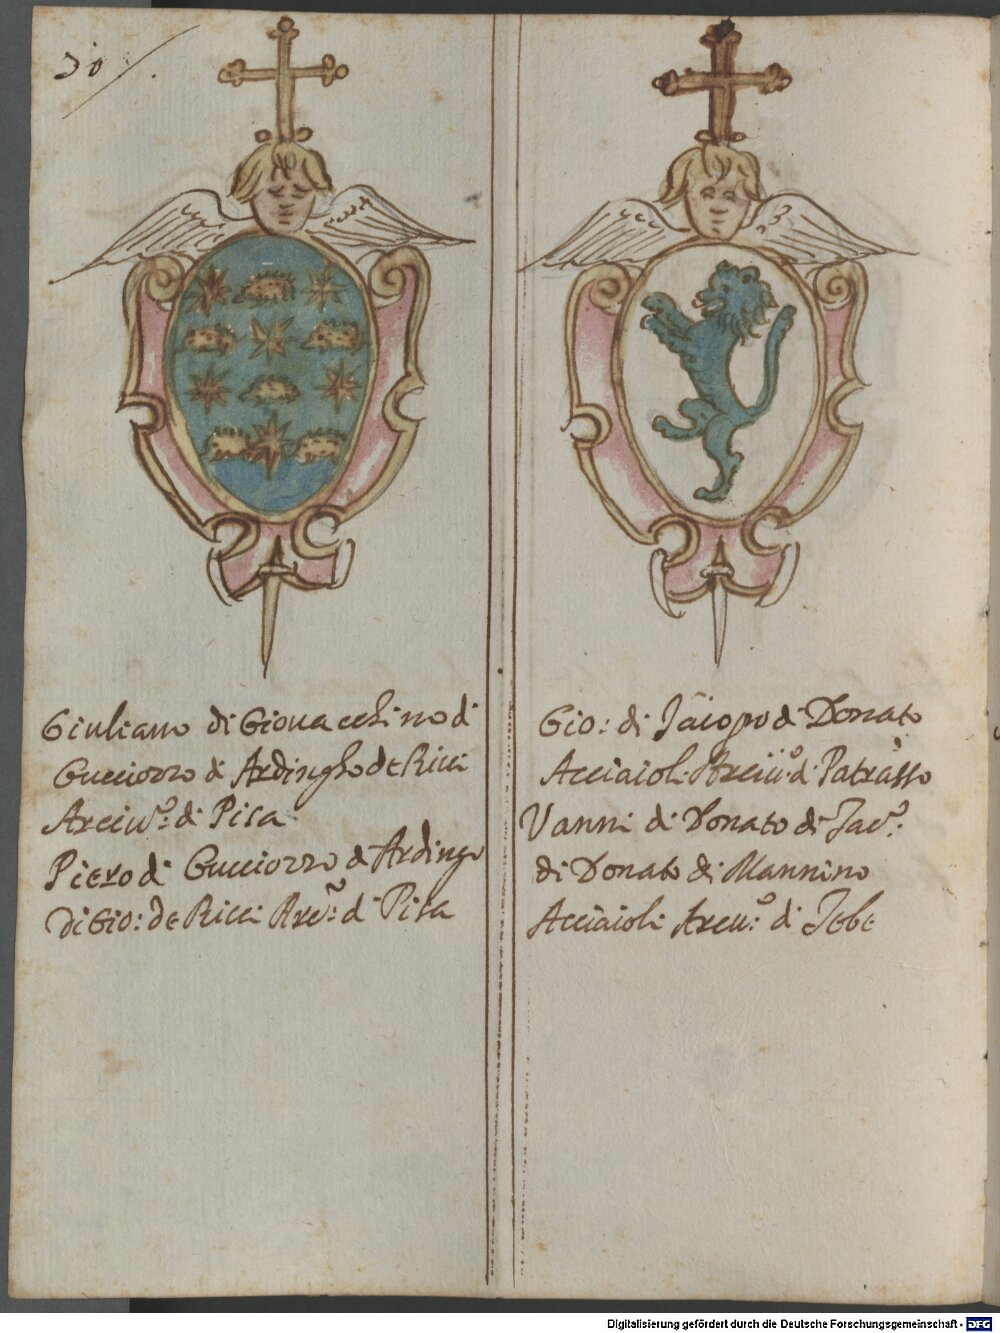 30
Giuliano di Giouacchino di
Gucciozzo di Ardingho de Ricci
Arciu.º di Pisa
Piero di Gucciozzo di Ardingo
di Gio: de Ricci Arc.º di Pisa
Gio: di Jaiopo di Donato
Acciaioli Arciu.º di Patrasso
Vanni di Donato di Jac.º
di Donato di Mannino
Acciaioli Arciu.º di Tebe
Digitalisierung gefördert durch die Deutsche Forschungsgemeinschaft - DFG